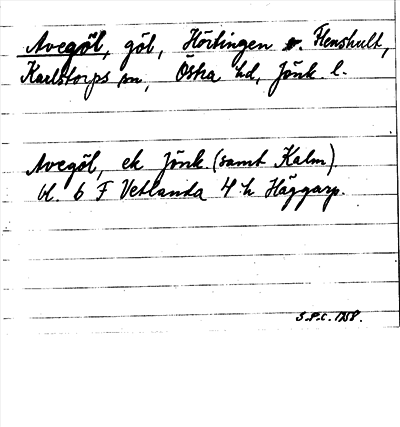 Avegöl, göl, Hörlingen o. Flenshult,
Karlstorps sn, Östra hd, Jönk. l.
Avegöl, ek Jönk. (samt Kalm)
bl. 6 F Vetlanda 4 h Häggarp.
S.P.C. 1958.